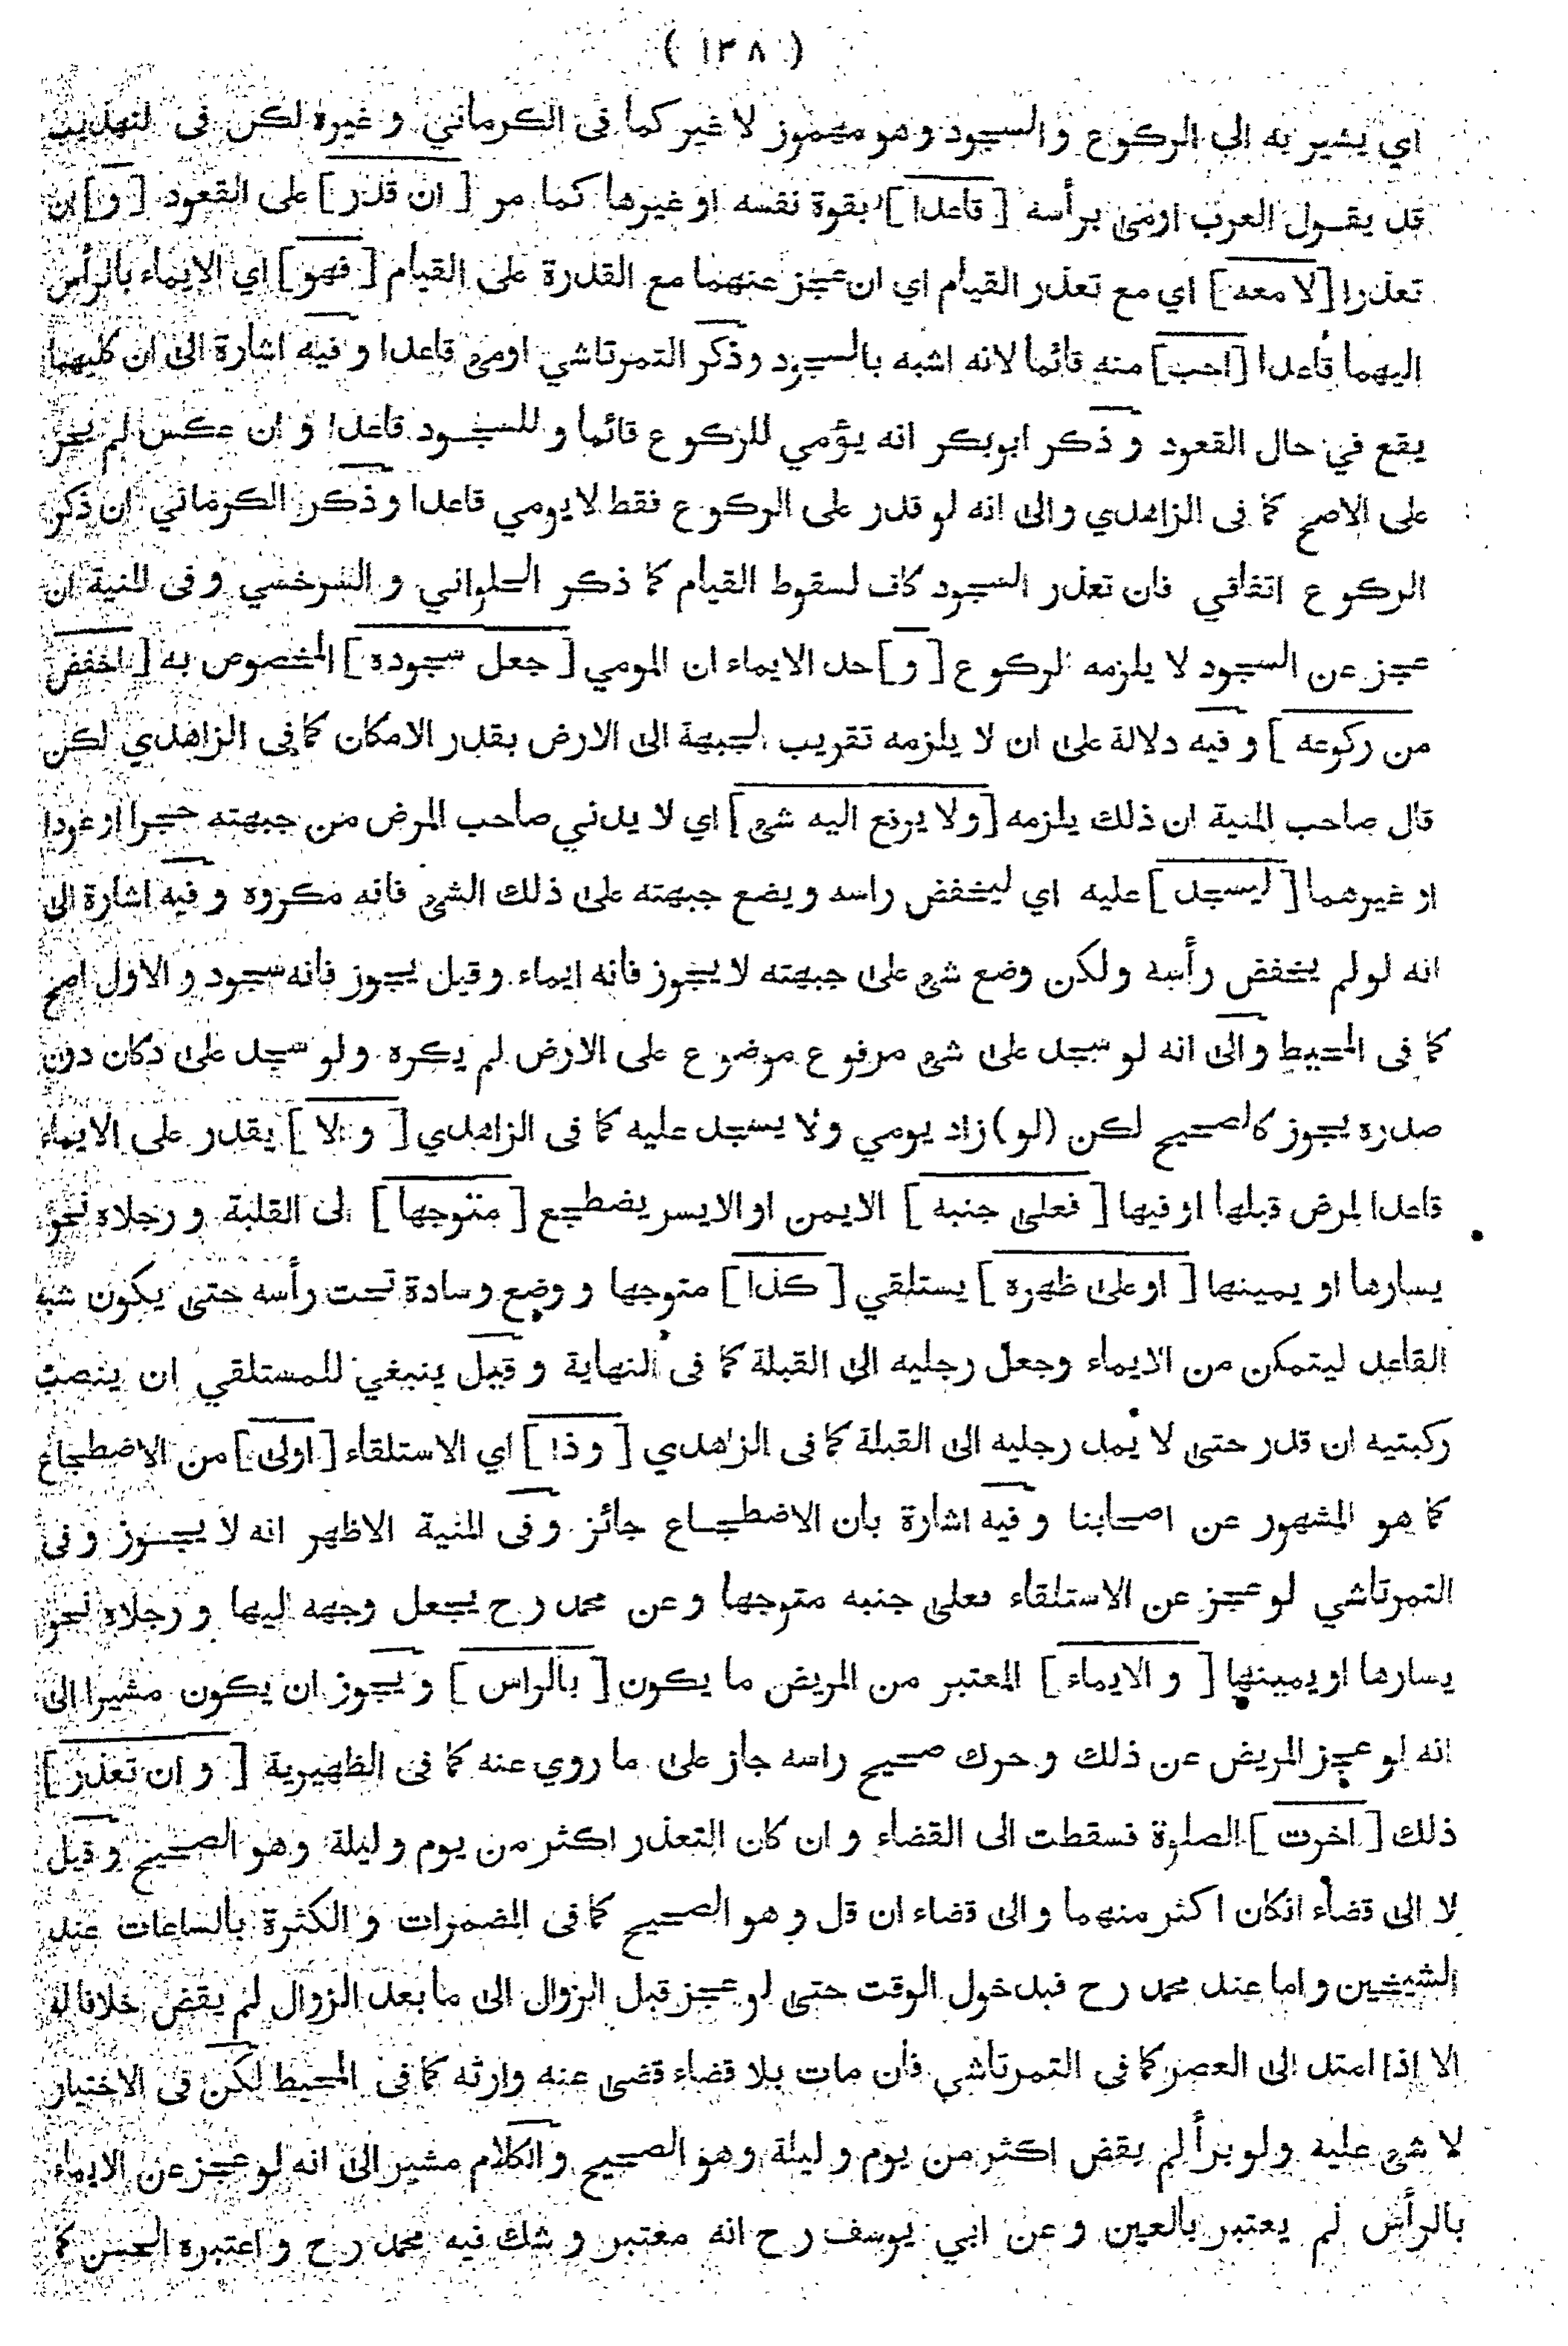 ( ١٣٨ )
اي يشير به الى الركوع والسجود وهو مهموز لا غير كما فى الكرماني و غيره لكن فى التهذيب
قد يقول العرب اومى برأسه [ قاعدا ] بقوة نفسه او غيرها كما مر [ ان قدر ] على القعود [ و ] ان
تعذرا [ لا معه ] اي مع تعذر القيام اي ان عجز عنهما مع القدرة على القيام [ فهو ] اي الايماء بالرأس
اليهما قاعدا [ احب ] منه قائما لانه اشبه بالسجود وذكر التمرتاشي اومى قاعدا و فيه اشارة الى ان كليهما
يقع في حال القعود و ذكر ابوبكر انه يؤمي للركوع قائما و للسجود قاعدا و ان عكس لم يجز
على الاصح كما فى الزاهدي والى انه لو قدر على الركوع فقط لا يومي قاعدا و ذكر الكرماني ان ذكر
الركوع اتفاقي فان تعذر السجود كاف لسقوط القيام كما ذكر الحلواني و السرخسي و فى المنية ان
عجز عن السجود لا يلزمه الركوع [ و ] حد الايماء ان المومي [ جعل سجوده ] المخصوص به [ اخفض
من ركوعه ] و فيه دلالة على ان لا يلزمه تقريب الجبهة الى الارض بقدر الامكان كما فى الزاهدي لكن
قال صاحب المنية ان ذلك يلزمه [ ولا يرفع اليه شئ ] اي لا يدني صاحب المرض من جبهته حجرا او عودا
او غيرهما [ ليسجد ] عليه اي ليخفض راسه و يضع جبهته على ذلك الشئ فانه مكروه و فيه اشارة الى
انه لو لم يخفض رأسه ولكن وضع شئ على جبهته لا يجوز فانه ايماء و قيل يجوز فانه سجود و الاول اصح
كما فى المحيط و الى انه لو سجد على شئ مرفوع موضوع على الارض لم يكره و لو سجد على دكان دون
صدره يجوز كالصحيح لكن (لو) زاد يومي ولا يسجد عليه كما فى الزاهدي [ و الا ] يقدر على الايماء
قاعدا لمرض قبلها او فيها [ فعلى جنبه ] الايمن او الايسر يضطجع [ متوجها ] الى القلبة و رجلاه نحو
يسارها او يمينها [ او على ظهره ] يستلقي [ كذا ] متوجها و وضع وسادة تحت رأسه حتى يكون شبه
القاعد ليتمكن من الايماء وجعل رجليه الى القبلة كما فى النهاية و قيل ينبغي للمستلقي ان ينصب
ركبتيه ان قدر حتى لا يمد رجليه الى القبلة كما فى الزاهدي [ وذا ] اي الاستلقاء [ اولى ] من الاضطجاع
كما هو المشهور عن اصحابنا و فيه اشارة بان الاضطجاع جائز و فى المنية الاظهر انه لا يجوز و فى
التمرتاشي لو عجز عن الاستلقاء فعلى جنبه متوجها و عن محمد رح يجعل وجهه اليها و رجلاه نحو
يسارها او يمينها [ و الايماء ] المعتبر من المريض ما يكون [ بالراس ] و يجوز ان يكون مشيرا الى
انه لو عجز المريض عن ذلك و حرك صحيح راسه جاز على ما روي عنه كما فى الظهيرية [ و ان تعذر ]
ذلك [ اخرت ] الصلوة فسقطت الى القضاء و ان كان التعذر اكثر من يوم و ليلة وهو الصحيح و قيل
لا الى قضاء انكان اكثر منهما و الى قضاء ان قل و هو الصحيح كما فى المضمرات و الكثرة بالساعات عند
الشيخين و اما عند محمد رح فبدخول الوقت حتى لو عجز قبل الزوال الى ما بعد الزوال لم يقض خلافا له
الا اذا امتد الى العصر كما فى التمرتاشي فان مات بلا قضاء قضى عنه وارثه كما فى المحيط لكن فى الاختيار
لا شئ عليه و لو برأ لم يقض اكثر من يوم و ليلة وهو الصحيح و الكلام مشير الى انه لو عجز عن الايماء
بالرأس لم يعتبر بالعين و عن ابي يوسف رح انه معتبر و شك فيه محمد رح و اعتبره الحسن كما